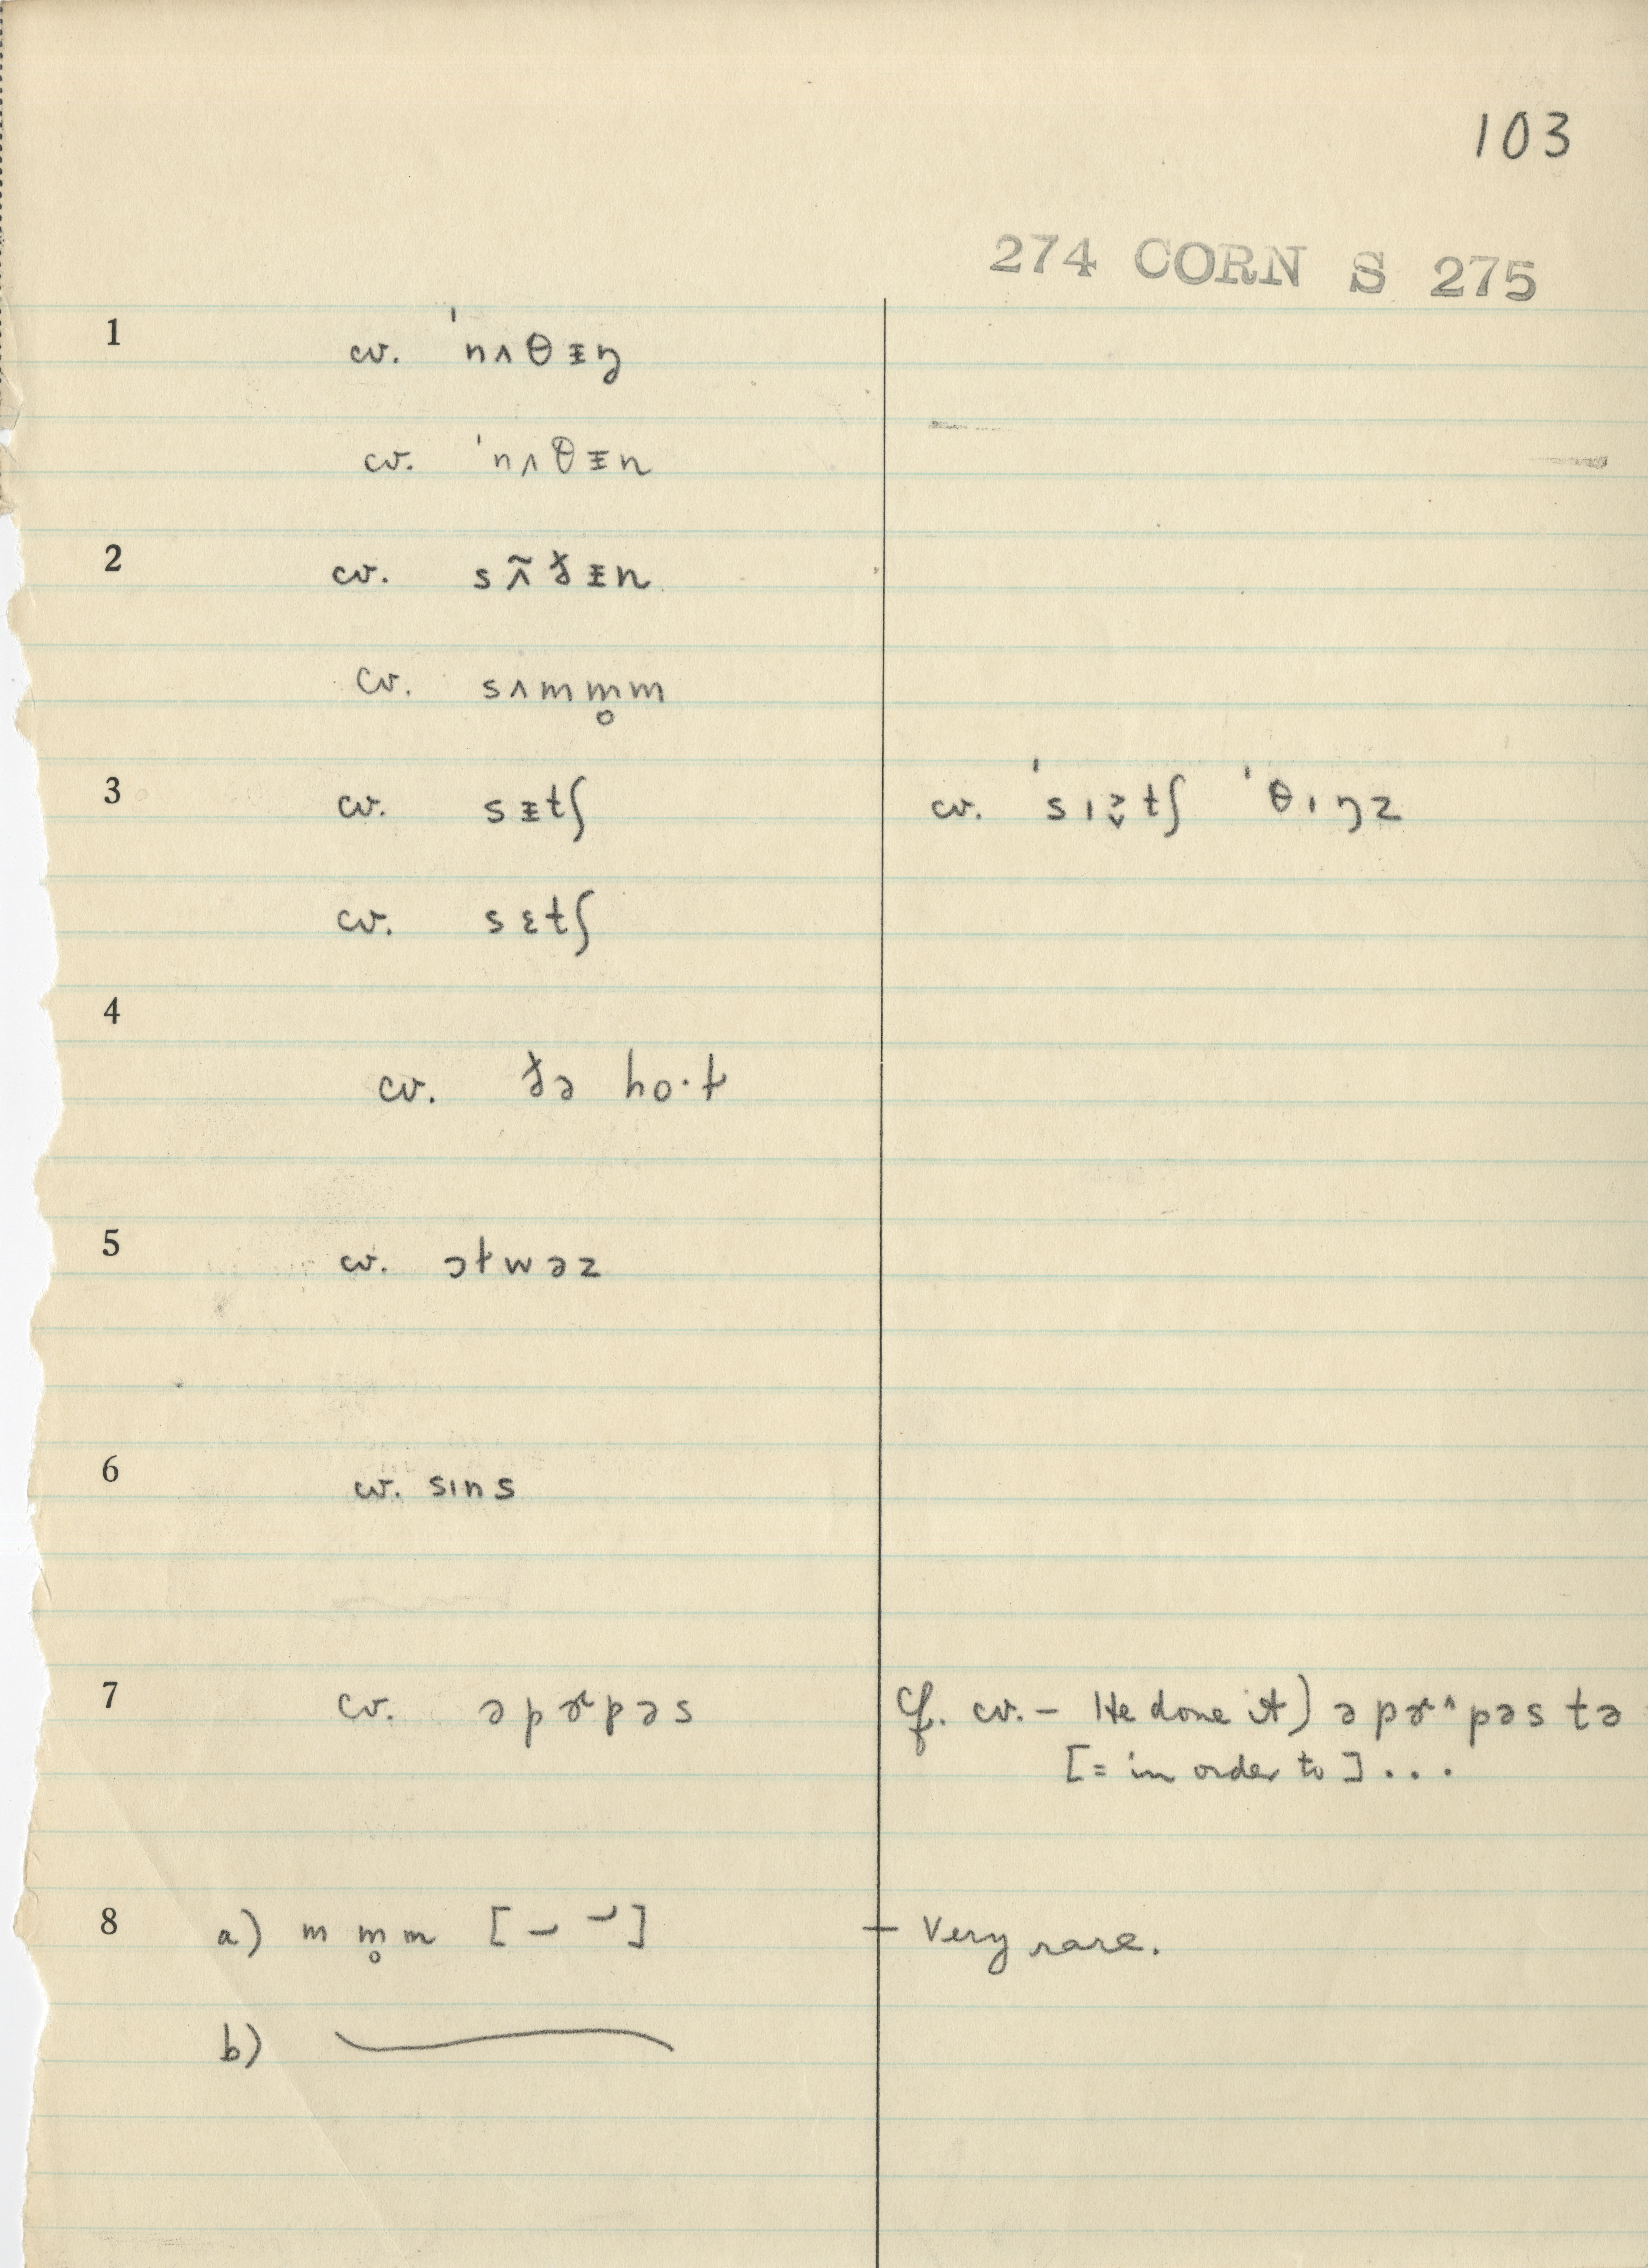 103
274 CORN S 275
1 cv. ˈnʌθᵻŋ
cv. ˈnʌθᵻn
2 cv. sʌ̃ɫᵻn
cv. sʌmm̥m
3 cv. sᵻtʃ cv. ˈsɪtʃ ˈθɪŋz
cv. sɛtʃ
4
cv. ðə ho·ɫ
5 cv. ɔɫwəz
6 cv. sɪns
7 cv. əpɚpəs Cf. cv. – He done it) əpɚ^pəs tə
[= in order to] ...
8 a) m m̥ m [ – – ] – Very rare.
b)